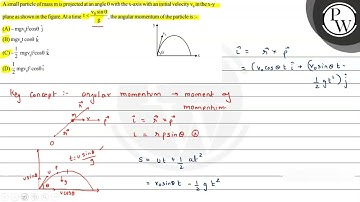 A small particle of mass m is projected at an angle θ with the x-axis with an initial velocity v₀ in the x-y
plane as shown in the figure. At a time t < v₀ sinθ / g, the angular momentum of the particle is :-
(A) - mgv₀t² cosθ ĵ
(B) mgv₀t cosθ k̂
(C) - 1/2 mgv₀t² cosθ k̂
(D) 1/2 mgv₀t² cosθ î
y
v₀
θ
x
l⃗ = r⃗ × p⃗
= (v₀cosθ t î + (v₀sinθ t - 1/2 gt²) ĵ
Key concept :- angular momentum → moment of
momentum
l⃗ = r⃗ × p⃗
l = r p sinθ
t = u sinθ / g
usinθ
u
θ
ucosθ
S = ut + 1/2 at²
= v₀sinθ t - 1/2 g t²